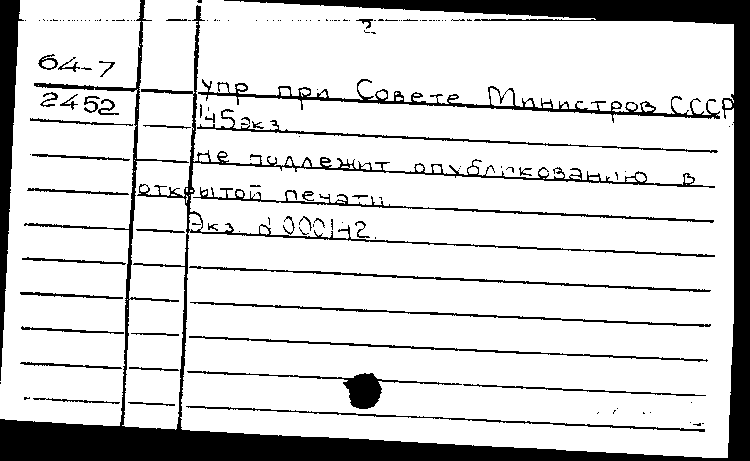 2
64-7
2452
упр при Совете Министров СССР
145экз.
не подлежит опубликованию в
открытой печати
Экз. № 000142.